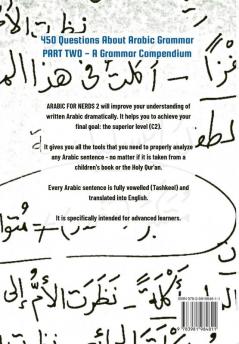 450 Questions About Arabic Grammar
PART TWO – A Grammar Compendium
أكلت في هذا
ARABIC FOR NERDS 2 will improve your understanding of
written Arabic dramatically. It helps you to achieve your
final goal: the superior level (C2).
It gives you all the tools that you need to properly analyze
any Arabic sentence - no matter if it is taken from a
children's book or the Holy Qur'an.
Every Arabic sentence is fully vowelled (Tashkeel) and
translated into English.
It is specifically intended for advanced learners.
أكلة - نظرت الأم إلى
ISBN 978-3-9819848-1-1
9 783981 984811